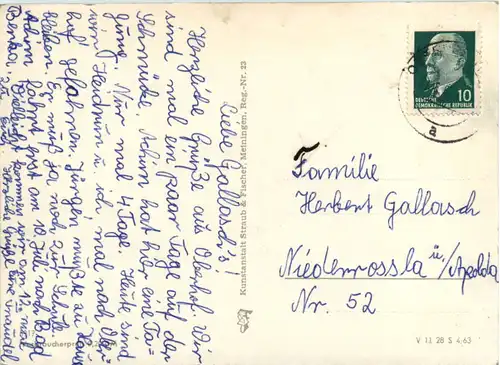 Liebe Gallasch's!
Herzliche Grüße aus Oberhof. Wir
sind mal ein paar Tage auf der
Schmücke. Achim hat hier eine Ta-
gung. Nur mal 4 Tage. Heute sind
wir, Heidrun u. ich, mal nach Ober-
hof gefahren. Jürgen mußte zu Haus
bleiben. Er muß ja noch zur Schule.
Achim fährt erst am 10. Juli nach Bad
Vielleicht kommen wir am
Herzliche Grüße
Kunstanstalt Straub & Fischer, Meiningen, Reg.-Nr. 23
DEUTSCHE
DEMOKRATISCHE REPUBLIK
10
a
Familie
Herbert Gallasch
Niederrossla ü/Apolda
Nr. 52
V 11 28 S 4,63